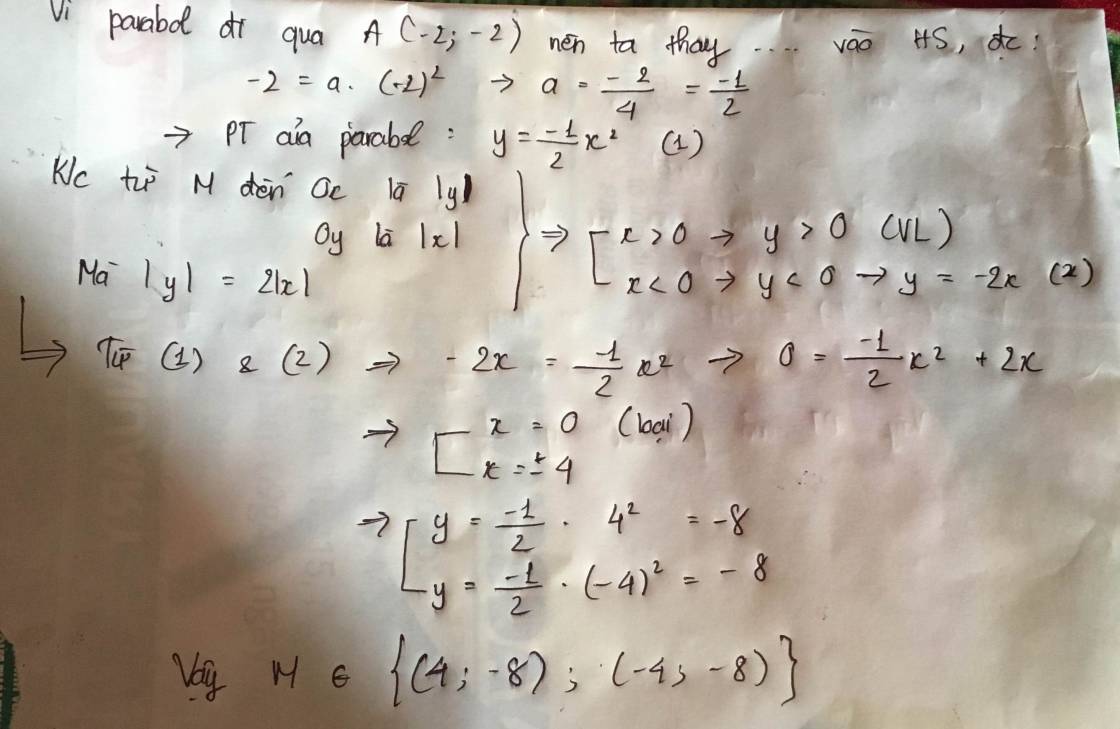 Vì parabol đi qua A (-2; -2) nên ta thay .... vào HS, đc:
-2 = a. (-2)² → a = -2/4 = -1/2
→ PT của parabol : y = -1/2 x² (1)
K/c từ M đến Ox là |y|
Oy là |x|
Mà |y| = 2|x|
} ⇒ [ x > 0 → y > 0 (VL)
x < 0 → y < 0 → y = -2x (2)
↳ Từ (1) & (2) ⇒ -2x = -1/2 x² → 0 = -1/2 x² + 2x
⇒ [ x = 0 (loại)
x = ± 4
⇒ [ y = -1/2 . 4² = -8
y = -1/2 . (-4)² = -8
Vậy M ∈ {(4; -8) ; (-4; -8)}